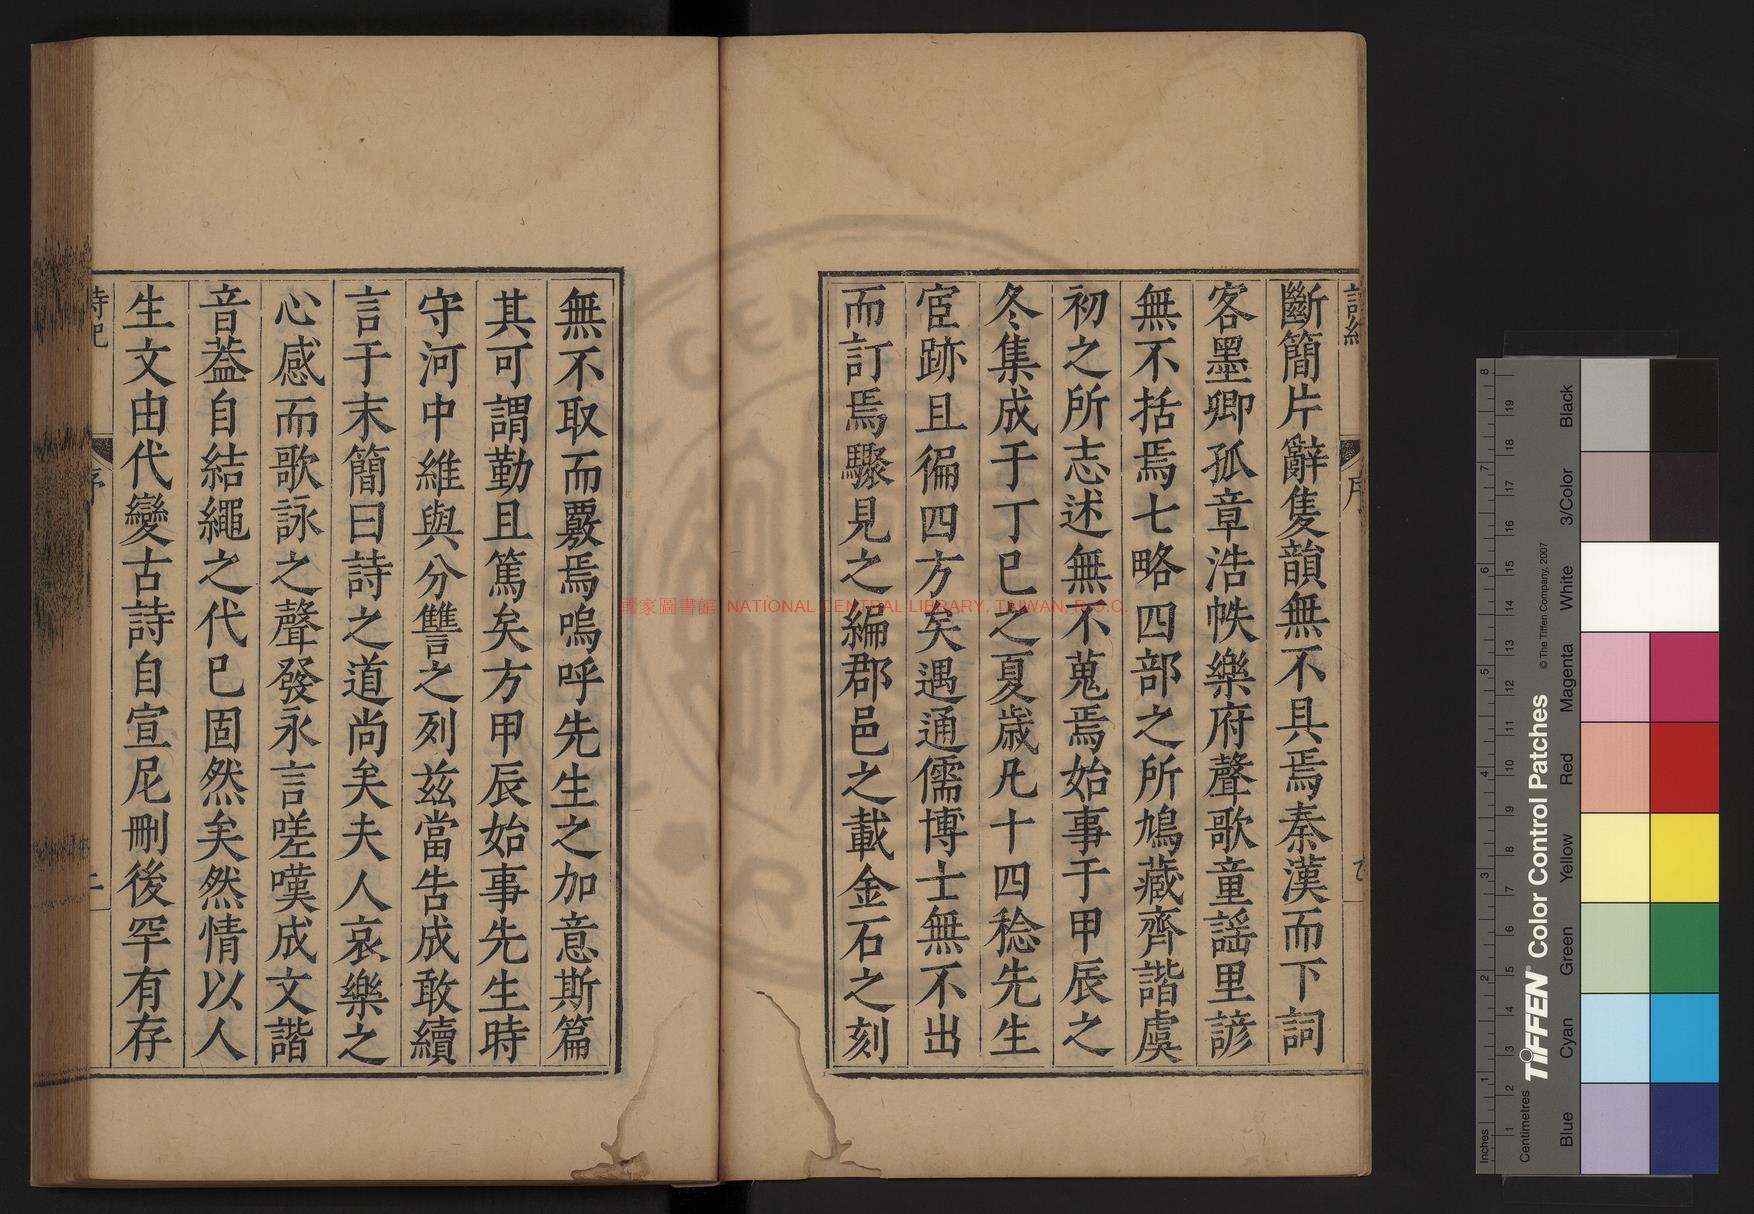 詩紀
序
斷簡片辭隻韻無不具焉秦漢而下詞
客墨卿孤章浩帙樂府聲歌童謡里諺
無不括焉七略四部之所鳩藏齊諧虞
初之所志述無不蒐焉始事于甲辰之
冬集成于丁巳之夏歲凡十四稔先生
宦跡且徧四方矣遇通儒博士無不出
而訂焉驟見之編郡邑之載金石之刻
無不取而覈焉嗚呼先生之加意斯篇
其可謂勤且篤矣方甲辰始事先生時
守河中維與分讐之列茲當告成敢續
言于末簡曰詩之道尚矣夫人哀樂之
心感而歌詠之聲發永言嗟嘆成文諧
音葢自結繩之代巳固然矣然情以人
生文由代變古詩自宣尼刪後罕有存
詩紀
序
二
國家圖書館, NATIONAL CENTRAL LIBRARY, TAIWAN, R.O.C.
Inches
1 2 3 4 5 6 7 8
Centimetres
1 2 3 4 5 6 7 8 9 10 11 12 13 14 15 16 17 18 19
TIFFEN Color Control Patches
© The Tiffen Company, 2007
Blue
Cyan
Green
Yellow
Red
Magenta
White
3/Color
Black